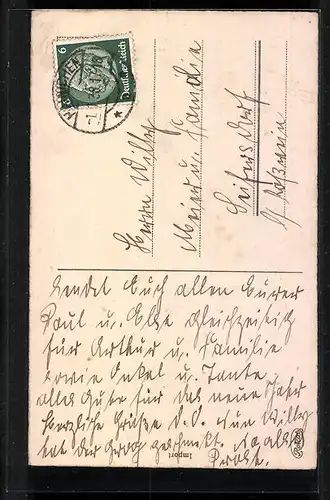 6
Deutsches Reich
Herrn Willy
Meier u. Familie
Seifersdorf
sendet Euch allen Eurer
Paul u. Else gleichzeitig
für Arthur u. Familie
sowie Onkel u. Tante
alles Gute für das neue Jahr
Herzliche Grüße d. O. nun Willy
hat der Grog geschmeckt, na also
Prost.
Import